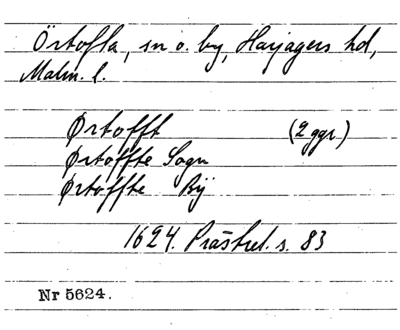 Örtofta, sn o. by, Harjagers hd,
Malm. l.
Ørtofft (2 ggr)
Ørtoffte Sogn
Ørtoffte Bÿ
1624. Prästrel. s. 83
Nr 5624.